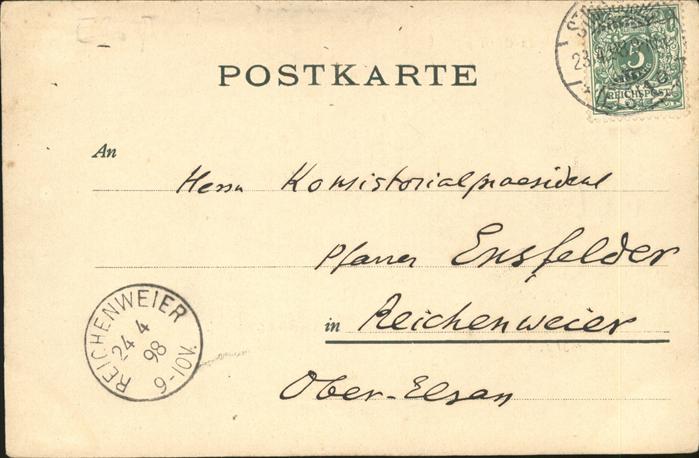 POSTKARTE
23.4.98
5
REICHSPOST
An
Herrn Konsistorialpraesident
Pfarrer Ensfelder
in Reichenweier
Ober-Elsan
REICHENWEIER
24 4
98
9-10V.